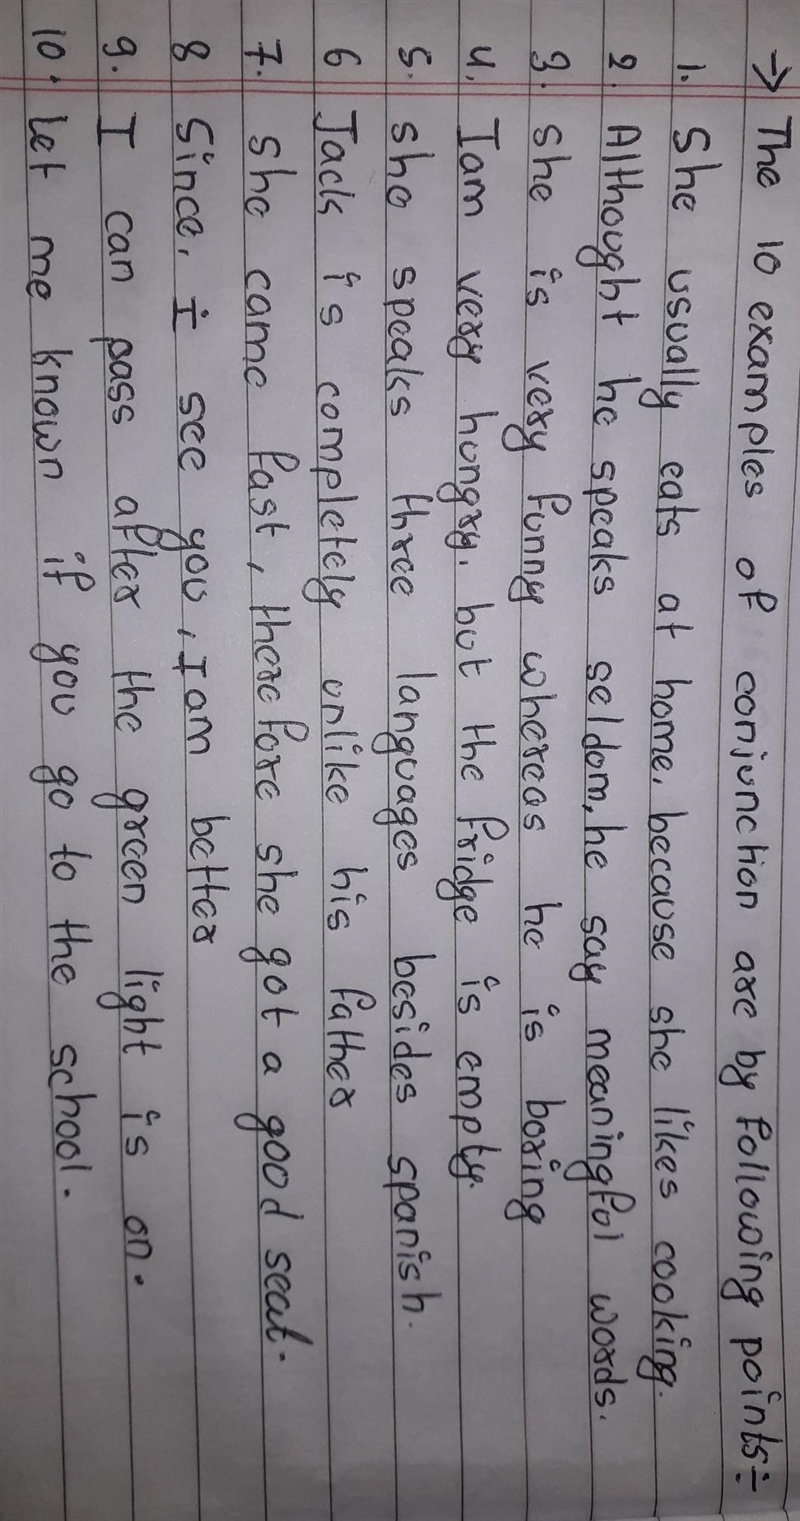 → The 10 examples of conjunction are by following points:-
1. She usually eats at home, because she likes cooking.
2. Althought he speaks seldom, he say meaningful words.
3. she is very funny whereas he is boxing
4. Iam very hungry, but the fridge is empty.
5. she speaks three languages besides spanish.
6 Jack is completely unlike his father
7. she came fast, therefore she got a good seat.
8 Since, I see you, Iam better
9. I can pass after the green light is on.
10. Let me known if you go to the school.